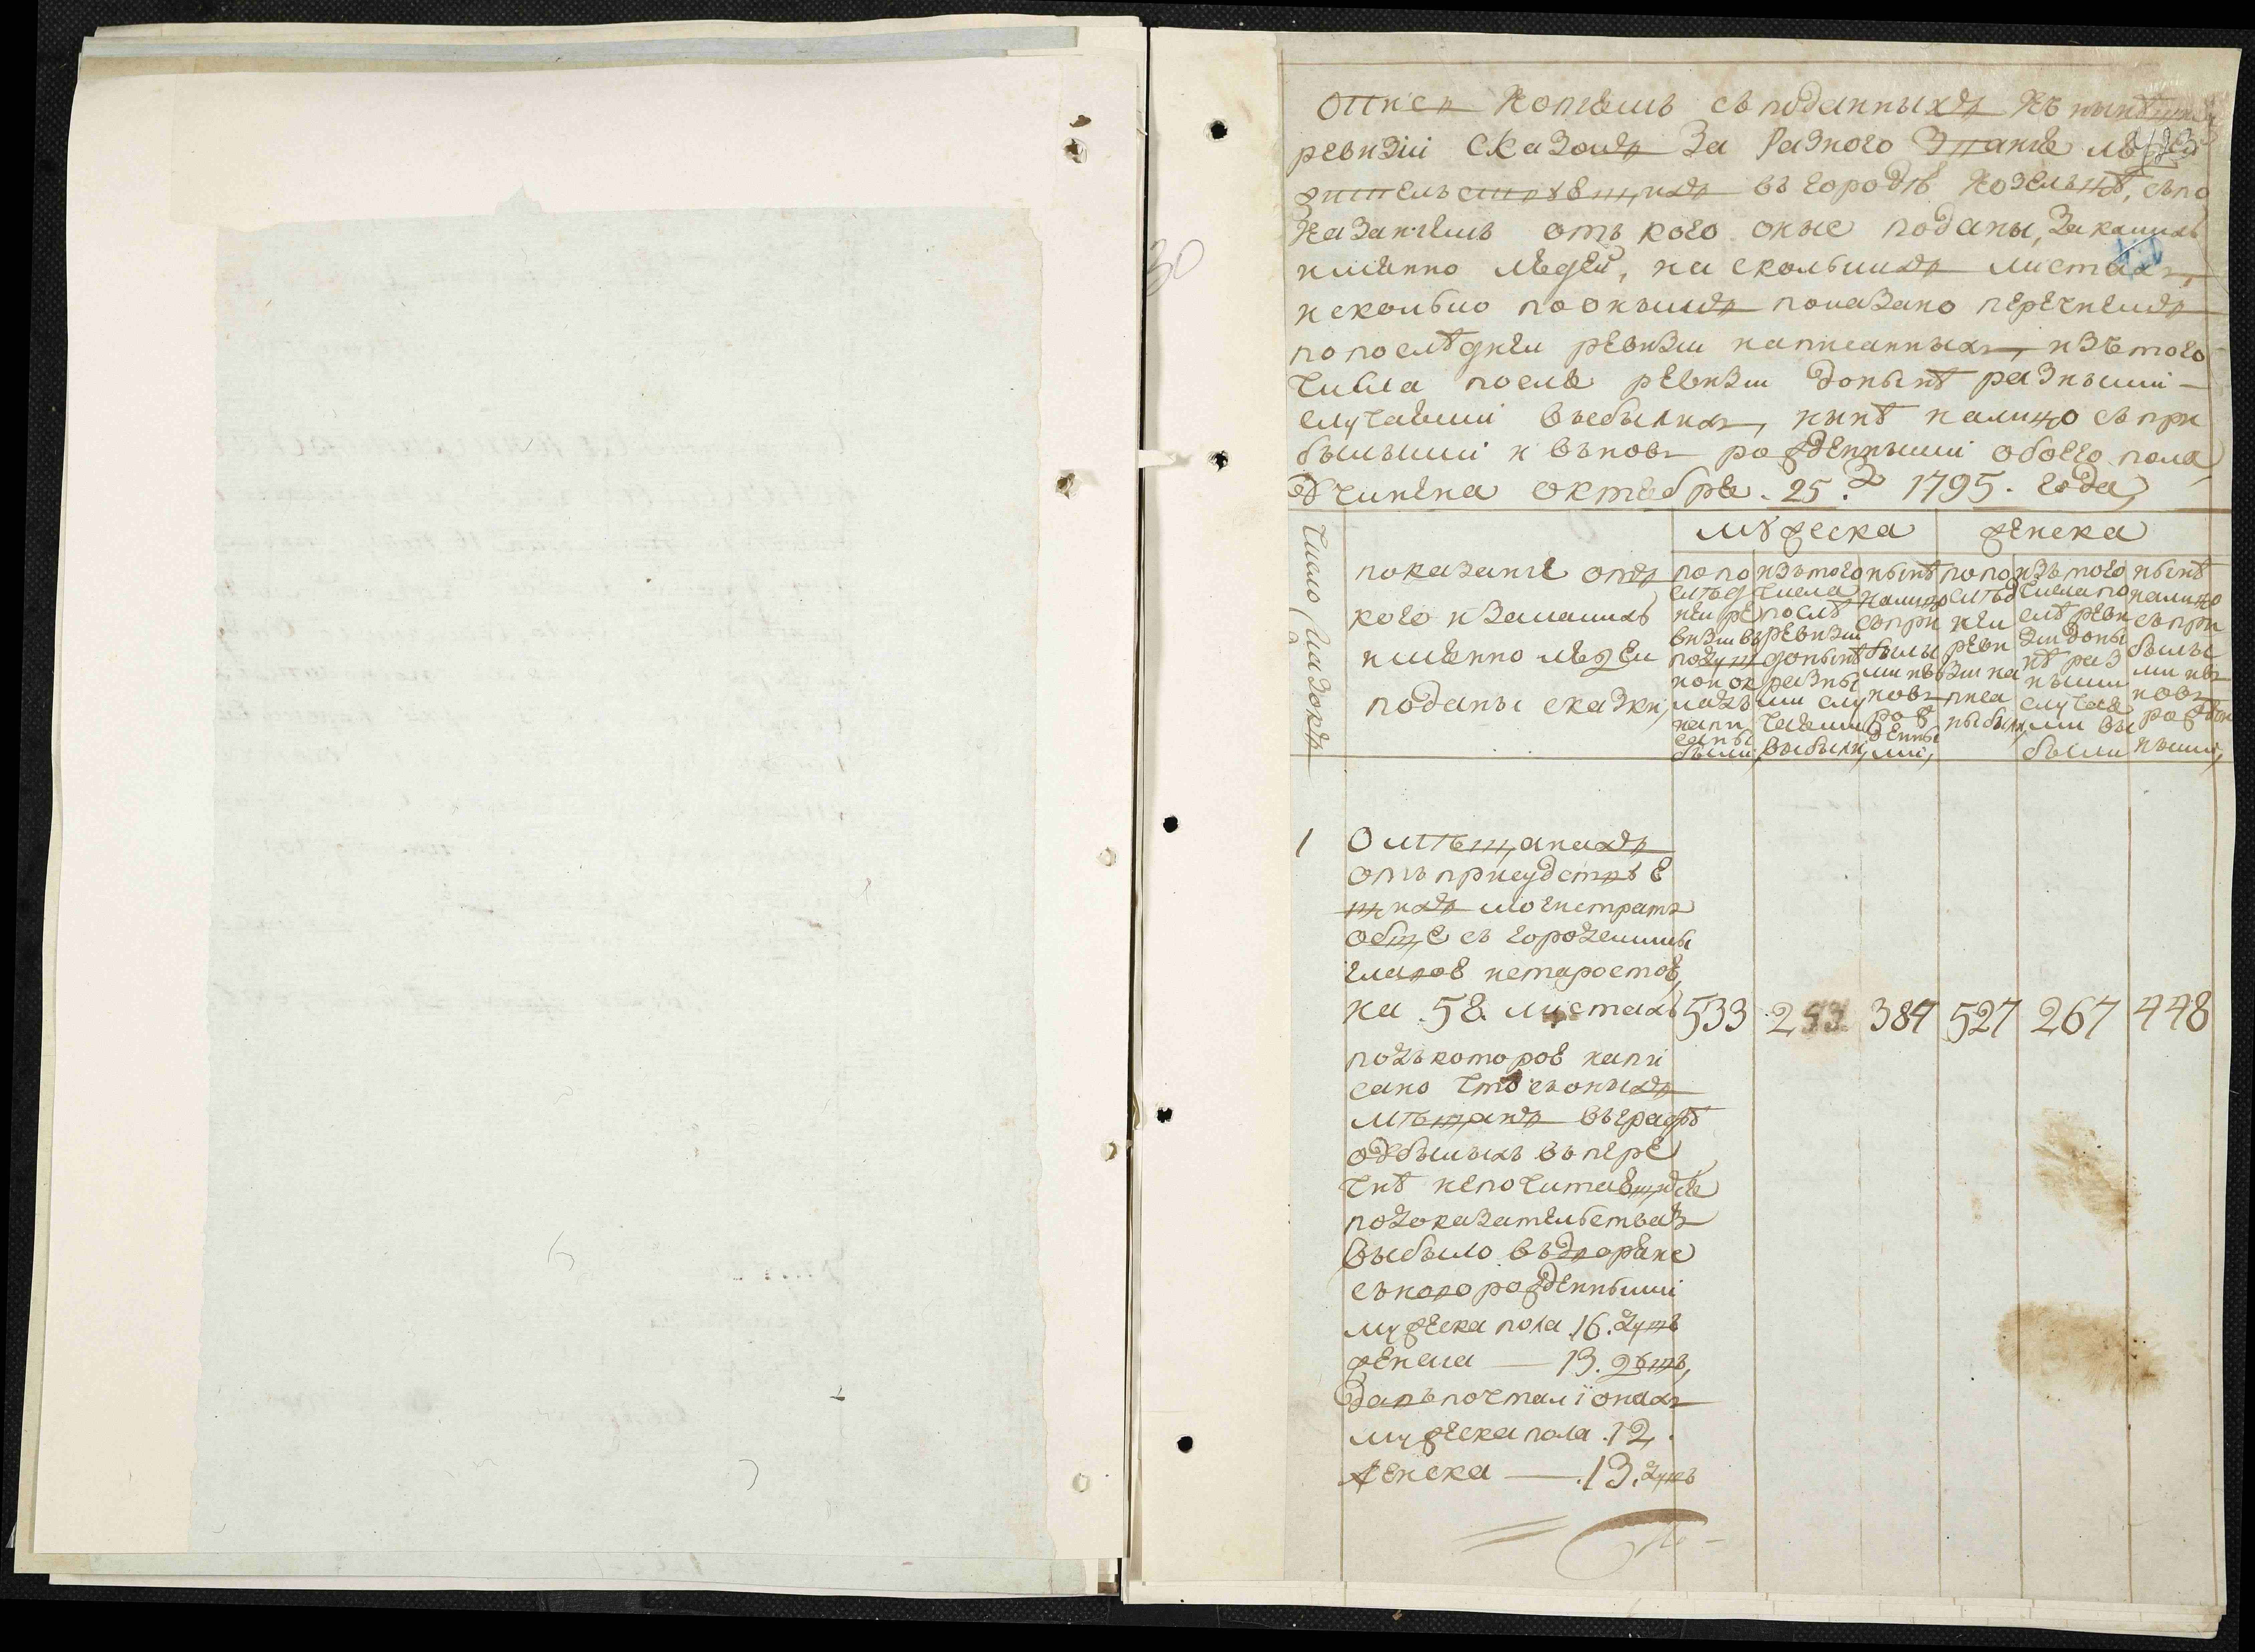 Опись копиямъ съ поданныхъ къ нынѣшней
ревизіи сказокъ за разного званія людей
жительствующихъ въ городѣ Козельцѣ, съ по
казаніемъ отъ кого оные поданы, за какихъ
имянно людей, на сколькихъ листахъ,
и сколько по онымъ показано перечнемъ
по последней ревизіи написанныхъ, изъ того
числа после ревизіи до нынѣ разными
случаями выбылихъ, нынѣ налицо съ при
былыми и въновь рожденными обоего пола
учинена октября 25. д 1795. года,
30
Число Сказокъ
показаніе отъ
кого и за какихъ
имянно людей
поданы сказки,
мужеска
женска
по по
слѣд
ней ре
визіи въ
подуш
ной ок
ладъ
напи
саны
были,
изъ того
числа
послѣ
ревизіи
до нынѣ
разны
ми слу
чаями
выбыли,
нынѣ
налицо
съ при
былы
ми и въ
новь
рож
денны
ми,
по по
слѣд
ней
реви
зіи на
писа
ны были,
изъ того
числа по
слѣ реви
зіи до ны
нѣ раз
ными
случая
ми вы
были
нынѣ
налицо
съ при
былы
ми и въ
новь
рожден
ными,
1 О мѣщанахъ
отъ присудствую
щихъ могистратъ
обще съ городскимы
главою и старостою,
на 58. листахъ 533 253. 384 527 267 448
подъ которою напи
сано что съ оныхъ
мѣщанъ въ графѣ
одбылыхъ въ пере
чнѣ непочитающіеся
по доказателствахъ
выбыло въ дворяне
съ новорожденными
мужеска пола .16. душъ
женска — 13. душъ,
да въ почталіонахъ
мужеска пола .12.
женска — .13. душъ